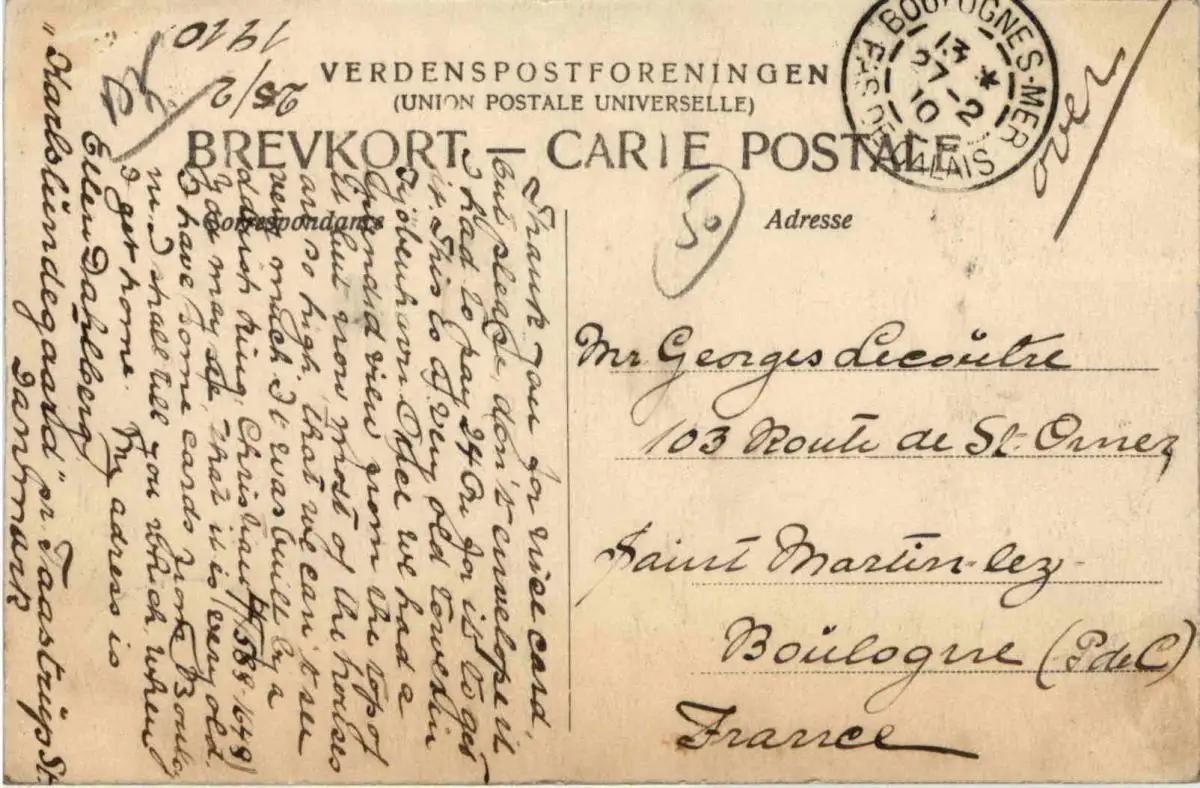 VERDENSPOSTFORENINGEN
(UNION POSTALE UNIVERSELLE)
BREVKORT — CARTE POSTALE
Correspondance
Adresse
BOULOGNE-S-MER
PAS DE CALAIS
13 *
27-2
10
over
25/2
1910
50
Mr Georges Lecoütre
103 Route de St. Omer
Saint Martin-lez-
Boülogne (P de C)
France
Thank you for nice card,
but please, don't envelope it
I had to pay 24 Ore for it to get
it. This is a very old tower in
Kjobenhavn. Once we had a
splendid view from the top of
it but now most of the houses
are so high, that we can't see
very much. It was built by a
danish king, Christian 4 (1588-1648)
You may see, that it is very old.
I have some cards from Boulog
ne. I shall tell you which when
I get home. My adress is
Ellen Dahlberg
"Karlslündegaard" pr. Taastrüp St.
Danmark